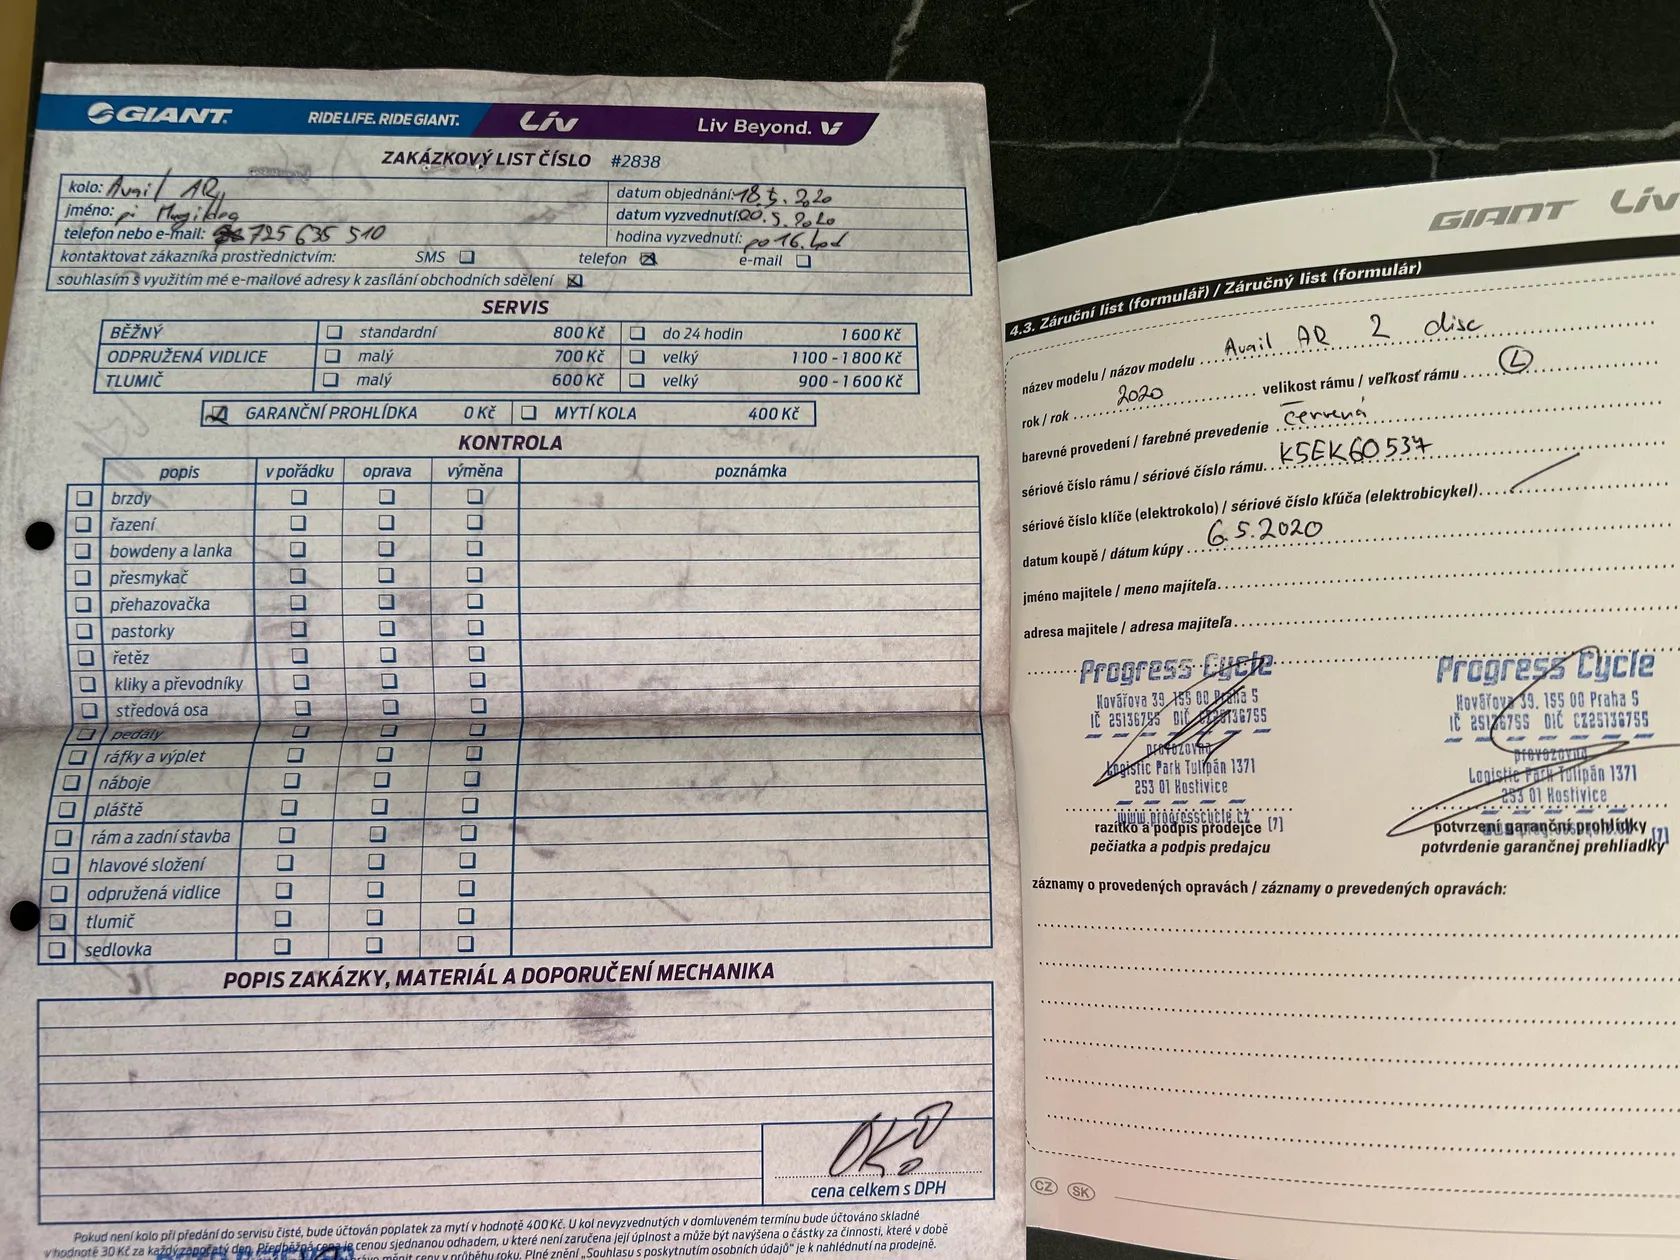 GIANT RIDE LIFE. RIDE GIANT. Liv Liv Beyond.
ZAKÁZKOVÝ LIST ČÍSLO #2838
kolo: Avail AR datum objednání: 18.5.2020
jméno: pí datum vyzvednutí: 20.5.2020
telefon nebo e-mail: 725 635 510 hodina vyzvednutí: po 16. hod
kontaktovat zákazníka prostřednictvím: SMS telefon e-mail
souhlasím s využitím mé e-mailové adresy k zasílání obchodních sdělení
SERVIS
BĚŽNÝ standardní 800 Kč do 24 hodin 1 600 Kč
ODPRUŽENÁ VIDLICE malý 700 Kč velký 1 100 - 1 800 Kč
TLUMIČ malý 600 Kč velký 900 - 1 600 Kč
GARANČNÍ PROHLÍDKA 0 Kč MYTÍ KOLA 400 Kč
KONTROLA
popis v pořádku oprava výměna poznámka
brzdy
řazení
bowdeny a lanka
přesmykač
přehazovačka
pastorky
řetěz
kliky a převodníky
středová osa
pedály
ráfky a výplet
náboje
pláště
rám a zadní stavba
hlavové složení
odpružená vidlice
tlumič
sedlovka
POPIS ZAKÁZKY, MATERIÁL A DOPORUČENÍ MECHANIKA
0Kč
cena celkem s DPH
Pokud není kolo při předání do servisu čisté, bude účtován poplatek za mytí v hodnotě 400 Kč. U kol nevyzvednutých v domluveném termínu bude účtováno skladné
v hodnotě 30 Kč za každý započatý den. Předběžná cena je cenou sjednanou odhadem, u které není zaručena její úplnost a může být navýšena o částky za činnosti, které v době
měnit ceny v průběhu roku. Plné znění „Souhlasu s poskytnutím osobních údajů" je k nahlédnutí na prodejně.
GIANT Liv
4.3. Záruční list (formulář) / Záručný list (formulár)
název modelu / názov modelu Avail AR 2 disc
rok / rok 2020 velikost rámu / veľkosť rámu L
barevné provedení / farebné prevedenie červená
sériové číslo rámu / sériové číslo rámu K5EK60537
sériové číslo klíče (elektrokolo) / sériové číslo kľúča (elektrobicykel)
datum koupě / dátum kúpy 6.5.2020
jméno majitele / meno majiteľa
adresa majitele / adresa majiteľa
Progress Cycle
Kovářova 39, 155 00 Praha 5
IČ 25136755 DIČ CZ25136755
provozovna
Logistic Park Tulipán 1371
253 01 Hostivice
www.progresscycle.cz
razítko a podpis prodejce [7]
pečiatka a podpis predajcu
Progress Cycle
Kovářova 39, 155 00 Praha 5
IČ 25136755 DIČ CZ25136755
provozovna
Logistic Park Tulipán 1371
253 01 Hostivice
potvrzení garanční prohlídky [7]
potvrdenie garančnej prehliadky
záznamy o provedených opravách / záznamy o prevedených opravách:
CZ SK